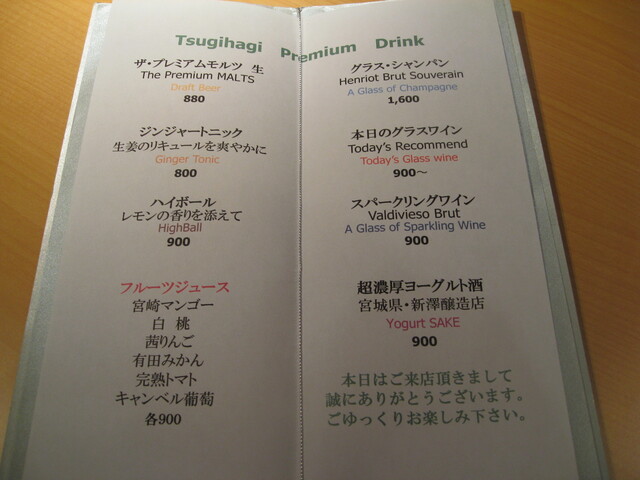 Tsugihagi Premium Drink
ザ・プレミアムモルツ 生
The Premium MALTS
Draft Beer
880
ジンジャートニック
生姜のリキュールを爽やかに
Ginger Tonic
800
ハイボール
レモンの香りを添えて
HighBall
900
フルーツジュース
宮崎マンゴー
白 桃
茜りんご
有田みかん
完熟トマト
キャンベル葡萄
各900
グラス・シャンパン
Henriot Brut Souverain
A Glass of Champagne
1,600
本日のグラスワイン
Today's Recommend
Today's Glass wine
900～
スパークリングワイン
Valdivieso Brut
A Glass of Sparkling Wine
900
超濃厚ヨーグルト酒
宮城県・新澤醸造店
Yogurt SAKE
900
本日はご来店頂きまして
誠にありがとうございます。
ごゆっくりお楽しみ下さい。